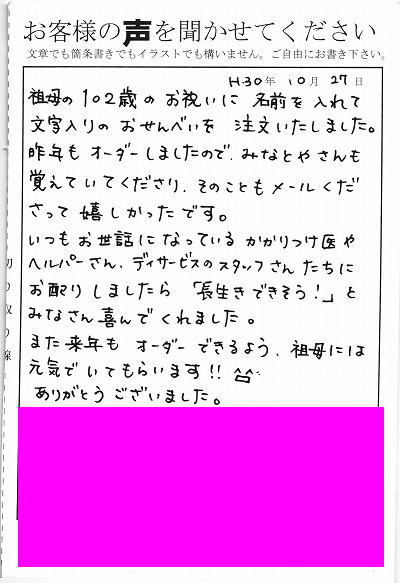 お客様の声を聞かせてください
文章でも箇条書きでもイラストでも構いません。ご自由にお書き下さい。
H30年 10月 27日
祖母の102歳のお祝いに 名前を入れて
文字入りのおせんべいを 注文いたしました。
昨年もオーダーしましたので、みなとやさんも
覚えていてくださり、そのこともメールくだ
さって嬉しかったです。
いつもお世話になっている かかりつけ医や
ヘルパーさん、デイサービスのスタッフさんたちに
お配りしましたら 「長生きできそう!」と
みなさん喜んでくれました。
また来年も オーダーできるよう、祖母には
元気でいてもらいます!! ^^
ありがとうございました。
切り取り線